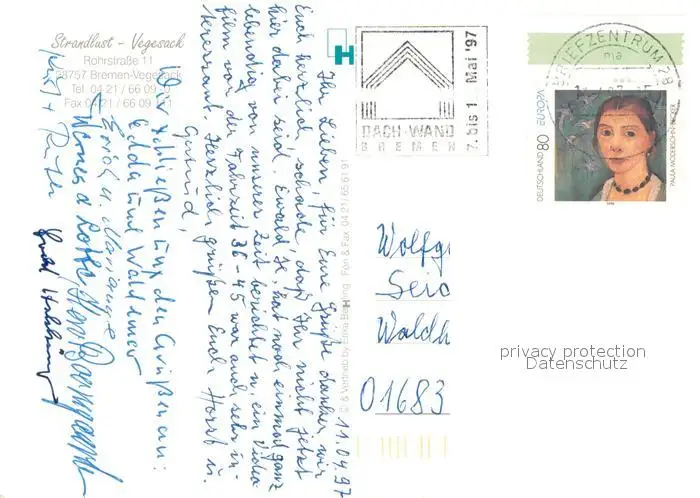 Strandlust - Vegesack
Rohrstraße 11
28757 Bremen-Vegesack
Tel. 04 21 / 66 09
Fax 04 21 / 66 09
11.04.97
Ihr Lieben, für Eure Grüße danken wir
Euch herzlich, schade daß Ihr nicht jetzt
hier dabei seid. Ewald H. hat noch einmal ganz
lebendig von unserer Zeit berichtet u. ein Video-
film von der Fahrzeit 36-45 war auch sehr in-
teressant. Herzlich grüßen Euch Horst u.
Gertrud,
Wir schließen uns den Grüßen an:
Edda und Waldemar
Erich u. Marianne
Werner &
H
& Vertrieb by Foto & Fax 04 21/ 65 61 91
DACH + WAND
BREMEN
7. bis 1 Mai '97
BRIEFZENTRUM 28
EUROPA
DEUTSCHLAND 80
PAULA MODERSOHN-BECKER
1996
Wolfg
Seid
Waldh
01683
privacy protection
Datenschutz